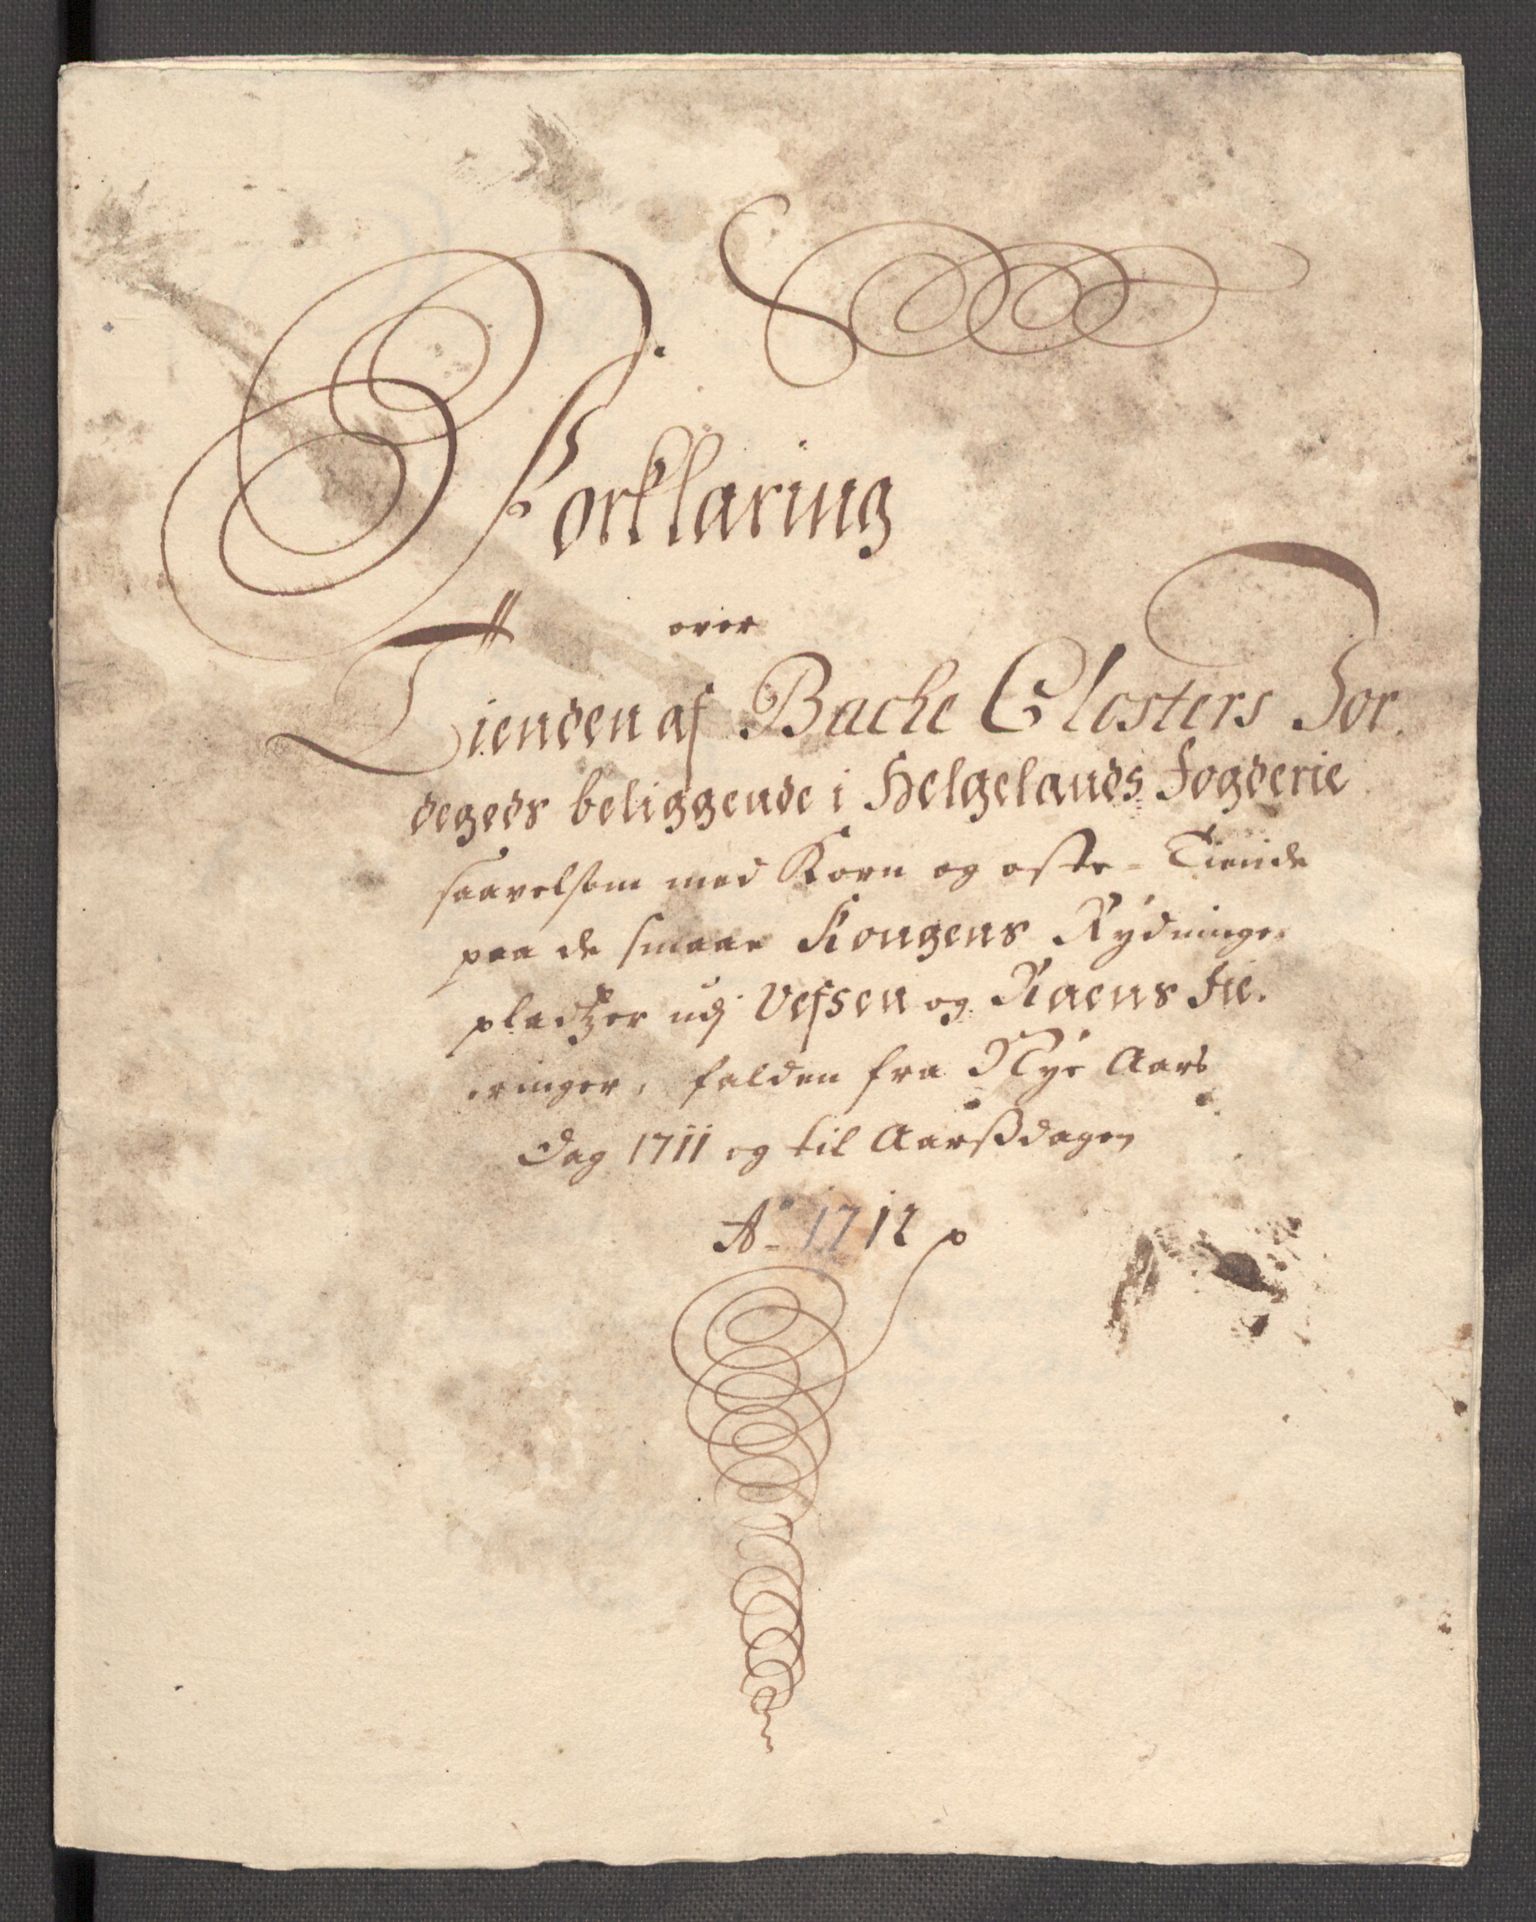 Forklaring
over
Tienden af Bache Closters Jor.
degeds beliggende i Helgelands Fogderie
saavelsom med Korn og oste-Tiende
paa de smaae Kongens Rydninge.
pladtzer udj Vefsen og Raens Fie.
.ringer, falden fra Nye Aars
Dag 1711 og til Aarsdagen
Ao 1712